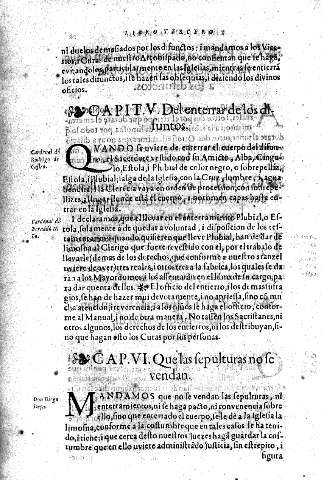 LIBRO TERCERO
ni duelos demasiados por los difunctos: i mandamos a los Vica-
rios, i Curas de nuestro Arçobispado, no consientan que se haga,
en rançones, particularmente en las Iglesias, mientras se
los tales difunctos, i se hazen las obsequias, i diziendo los divinos
oficios.
CAPIT V. Del enterrar de los di-
funtos.
Cardenal dõ
Rodrigo de
Castro.
QVANDO se uviere de enterrar el cuerpo del difun-
to, el Sacerdote vestido con su Amicto, Alba, Cingu-
lo, Estola, i Pluvial de color negro, o sobrepelliz,
Estola, i salga de la Iglesia, con la Cruz
la Clerecia vaya en orden de procession, con
llizes, i
trar en la Iglesia.
I declaramos, que el llevar en el enterramiento Pluvial, o Es-
tola, solamente a de quedar a voluntad, i disposicion de los
quando quisieren que lleve Pluvial, han de dar de
limosna al Clerigo que fuere revestido con el, por el trabajo de
llevarle, demas de los derechos, que conforme a nuestro aranzel
uviere de aver, tres reales, i otros tres a la fabrica, los quales se da-
ra a los Mayordomos i los assienten en el libro de su cargo, pa-
ra dar cuenta dellos. El oficio del entierro, i los demas sufra-
gios, se han de hazer mui devotamente, i no apriessa, sino cõ mu-
cha atencion, i reverencia, i a los pobres se haga el oficio, confor-
me al Manual, i no de otra manera. No tassen los Sacristanes, ni
otros algunos, los derechos de los entierros, ni los destribuyan, si-
no que hagan esto los Curas por sus personas.
CAP. VI. Que las sepulturas no se
vendan.
Don Diego
Deça.
MANDAMOS que no se vendan las sepulturas, ni
enterramientos, ni se haga pacto, ni convenencia sobre
ello, sino que enterrado el cuerpo, se le dè a la Iglesia la
limosna, conforme a la costumbre que en tales casos se ha teni-
do, i tiene: i que cerca desto nuestros Juezes hagã guardar la cos-
tumbre que en ello uviere administrando justicia, sin estrepito, i
figura